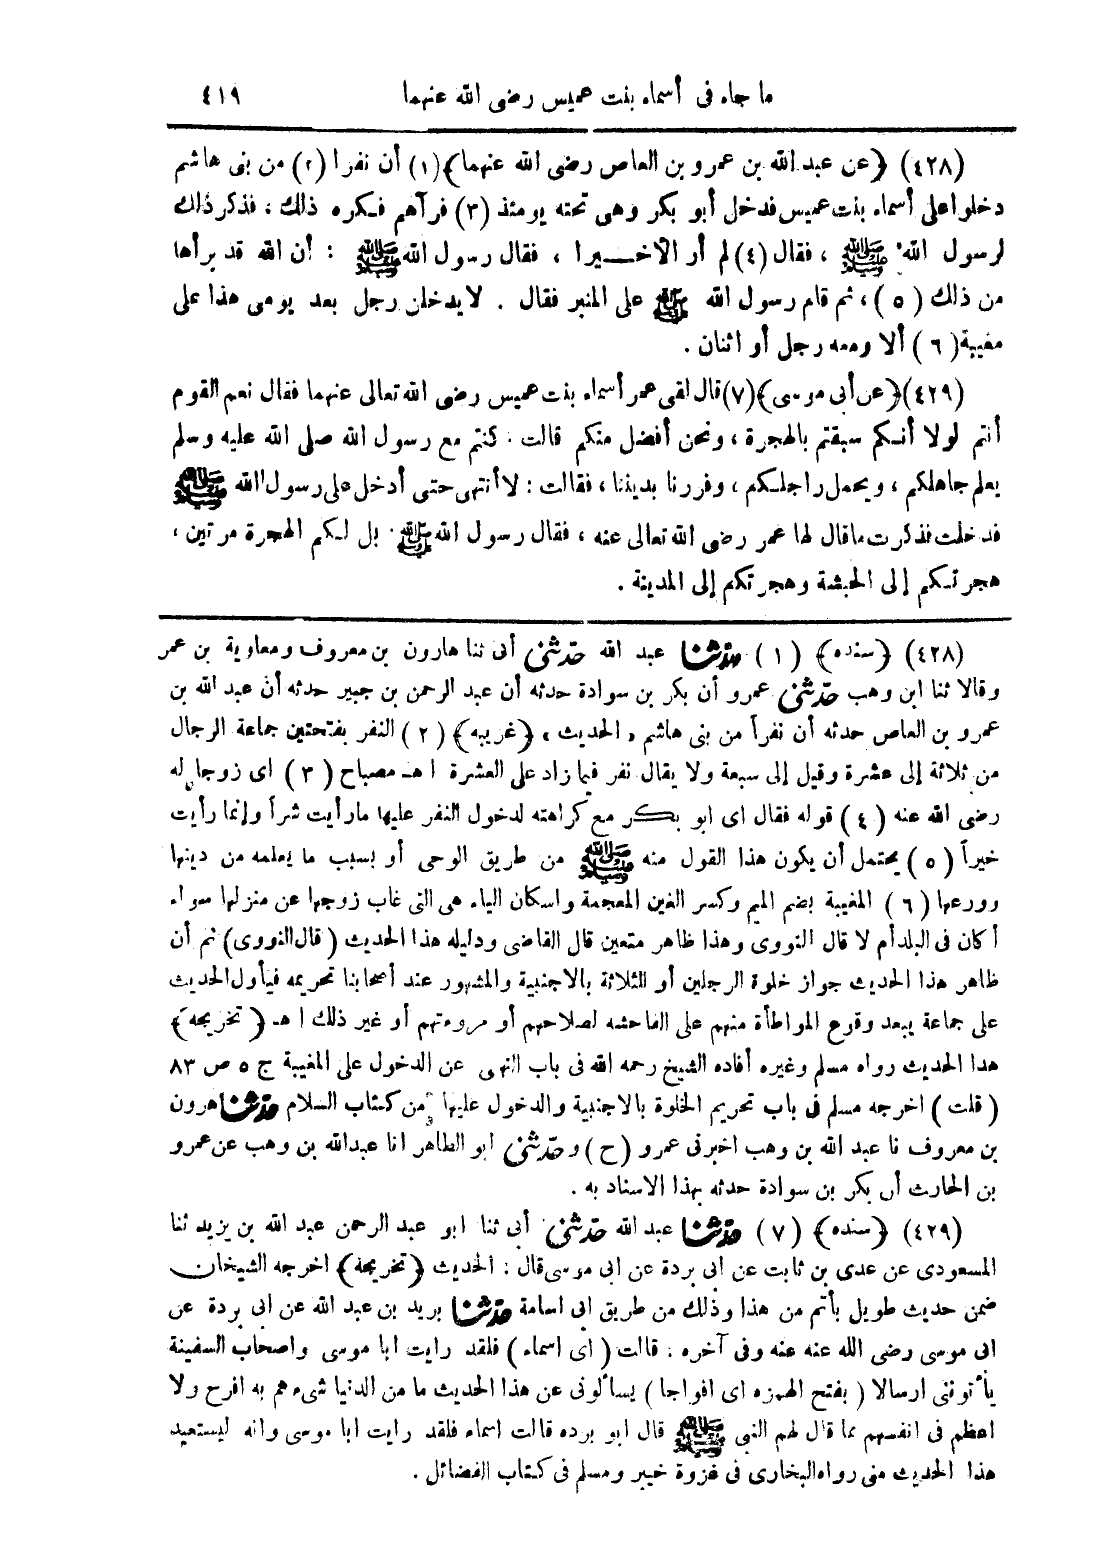 ما جاء فى أسماء بنت عميس رضى الله عنهما ٤١٩
(٤٢٨) ﴿عن عبد الله بن عمرو بن العاص رضى الله عنهما﴾(١) أن نفرا (٢) من بنى هاشم
دخلوا على أسماء بنت عميس فدخل أبو بكر وهى تحته يومئذ (٣) فرآهم فكره ذلك، فذكر ذلك
لرسول الله ﷺ، فقال (٤) لم أر الا خيرا، فقال رسول الله ﷺ : أن الله قد برأها
من ذلك (٥)، ثم قام رسول الله ﷺ على المنبر فقال . لا يدخلن رجل بعد يومى هذا على
مغيبة (٦) ألا ومعه رجل أو اثنان .
(٤٢٩) ﴿عن أبى موسى﴾(٧) قال لقى عمر أسماء بنت عميس رضى الله تعالى عنهما فقال نعم القوم
أنتم لولا أنكم سبقتم بالهجرة، ونحن أفضل منكم قالت . كنتم مع رسول الله صلى الله عليه وسلم
يعلم جاهلكم، ويحمل راجلكم، وفررنا بديننا، فقالت : لا أنتهى حتى أدخل على رسول الله ﷺ
فدخلت فذكرت ما قال لها عمر رضى الله تعالى عنه، فقال رسول الله ﷺ بل لكم الهجرة مرتين،
هجرتكم إلى الحبشة وهجرتكم إلى المدينة .
(٤٢٨) ﴿سنده﴾ (١) حدثنا عبد الله حدثنى أبى ثنا هارون بن معروف ومعاوية بن عمر
وقالا ثنا ابن وهب حدثنى عمرو أن بكر بن سوادة حدثه أن عبد الرحمن بن جبير حدثه أن عبد الله بن
عمرو بن العاص حدثه أن نفراً من بنى هاشم «الحديث» ﴿غريبه﴾ (٢) النفر بفتحتين جماعة الرجال
من ثلاثة إلى عشرة وقيل إلى سبعة ولا يقال نفر فيما زاد على العشرة اهـ مصباح (٣) اى زوجا له
رضى الله عنه (٤) قوله فقال اى ابو بكر مع كراهته لدخول النفر عليها مارأيت شراً وإنما رأيت
خيراً (٥) يحتمل أن يكون هذا القول منه ﷺ من طريق الوحى أو بسبب ما يعلمه من دينها
وورعها (٦) المغيبة بضم الميم وكسر الغين المعجمة واسكان الياء هى التى غاب زوجها عن منزلها سواء
أكان فى البلد أم لا قال النووى وهذا ظاهر متعين قال القاضى ودليله هذا الحديث (قال النووى) ثم أن
ظاهر هذا الحديث جواز خلوة الرجلين أو الثلاثة بالاجنبية والمشهور عند أصحابنا تحريمه فيأول الحديث
على جماعة يبعد وقوع المواطأة منهم على الفاحشه لصلاحهم أو مروءتهم أو غير ذلك اهـ ﴿تخريجه﴾
هدا الحديث رواه مسلم وغيره أفاده الشيخ رحمه الله فى باب النهى عن الدخول على المغيبة ج ٥ ص ٨٣
(قلت) اخرجه مسلم فى باب تحريم الخلوة بالاجنبية والدخول عليها من كتاب السلام حدثنا هرون
بن معروف نا عبد الله بن وهب اخبرنى عمرو (ح) وحدثنى ابو الطاهر انا عبدالله بن وهب عن عمرو
بن الحارث أن بكر بن سوادة حدثه بهذا الاسناد به .
(٤٢٩) ﴿سنده﴾ (٧) حدثنا عبد الله حدثنى أبى ثنا ابو عبد الرحمن عبد الله بن يزيد ثنا
المسعودى عن عدى بن ثابت عن ابى بردة عن ابى موسى قال : الحديث ﴿تخريجه﴾ اخرجه الشيخان
ضمن حديث طويل بأتم من هذا وذلك من طريق ابى اسامة حدثنا بريد بن عبد الله عن ابى بردة عن
ابى موسى رضى الله عنه عنه وفى آخره : قالت (اى اسماء) فلقد رايت ابا موسى واصحاب السفينة
يأتوننى ارسالا (بفتح الهمزه اى افواجا) يسألونى عن هذا الحديث ما من الدنيا شىء هم به افرح ولا
اعظم فى انفسهم مما قال لهم النبى ﷺ قال ابو برده قالت اسماء فلقد رايت ابا موسى وانه ليستعيد
هذا الحديث منى رواه البخارى فى غزوة خيبر ومسلم فى كتاب الفضائل .